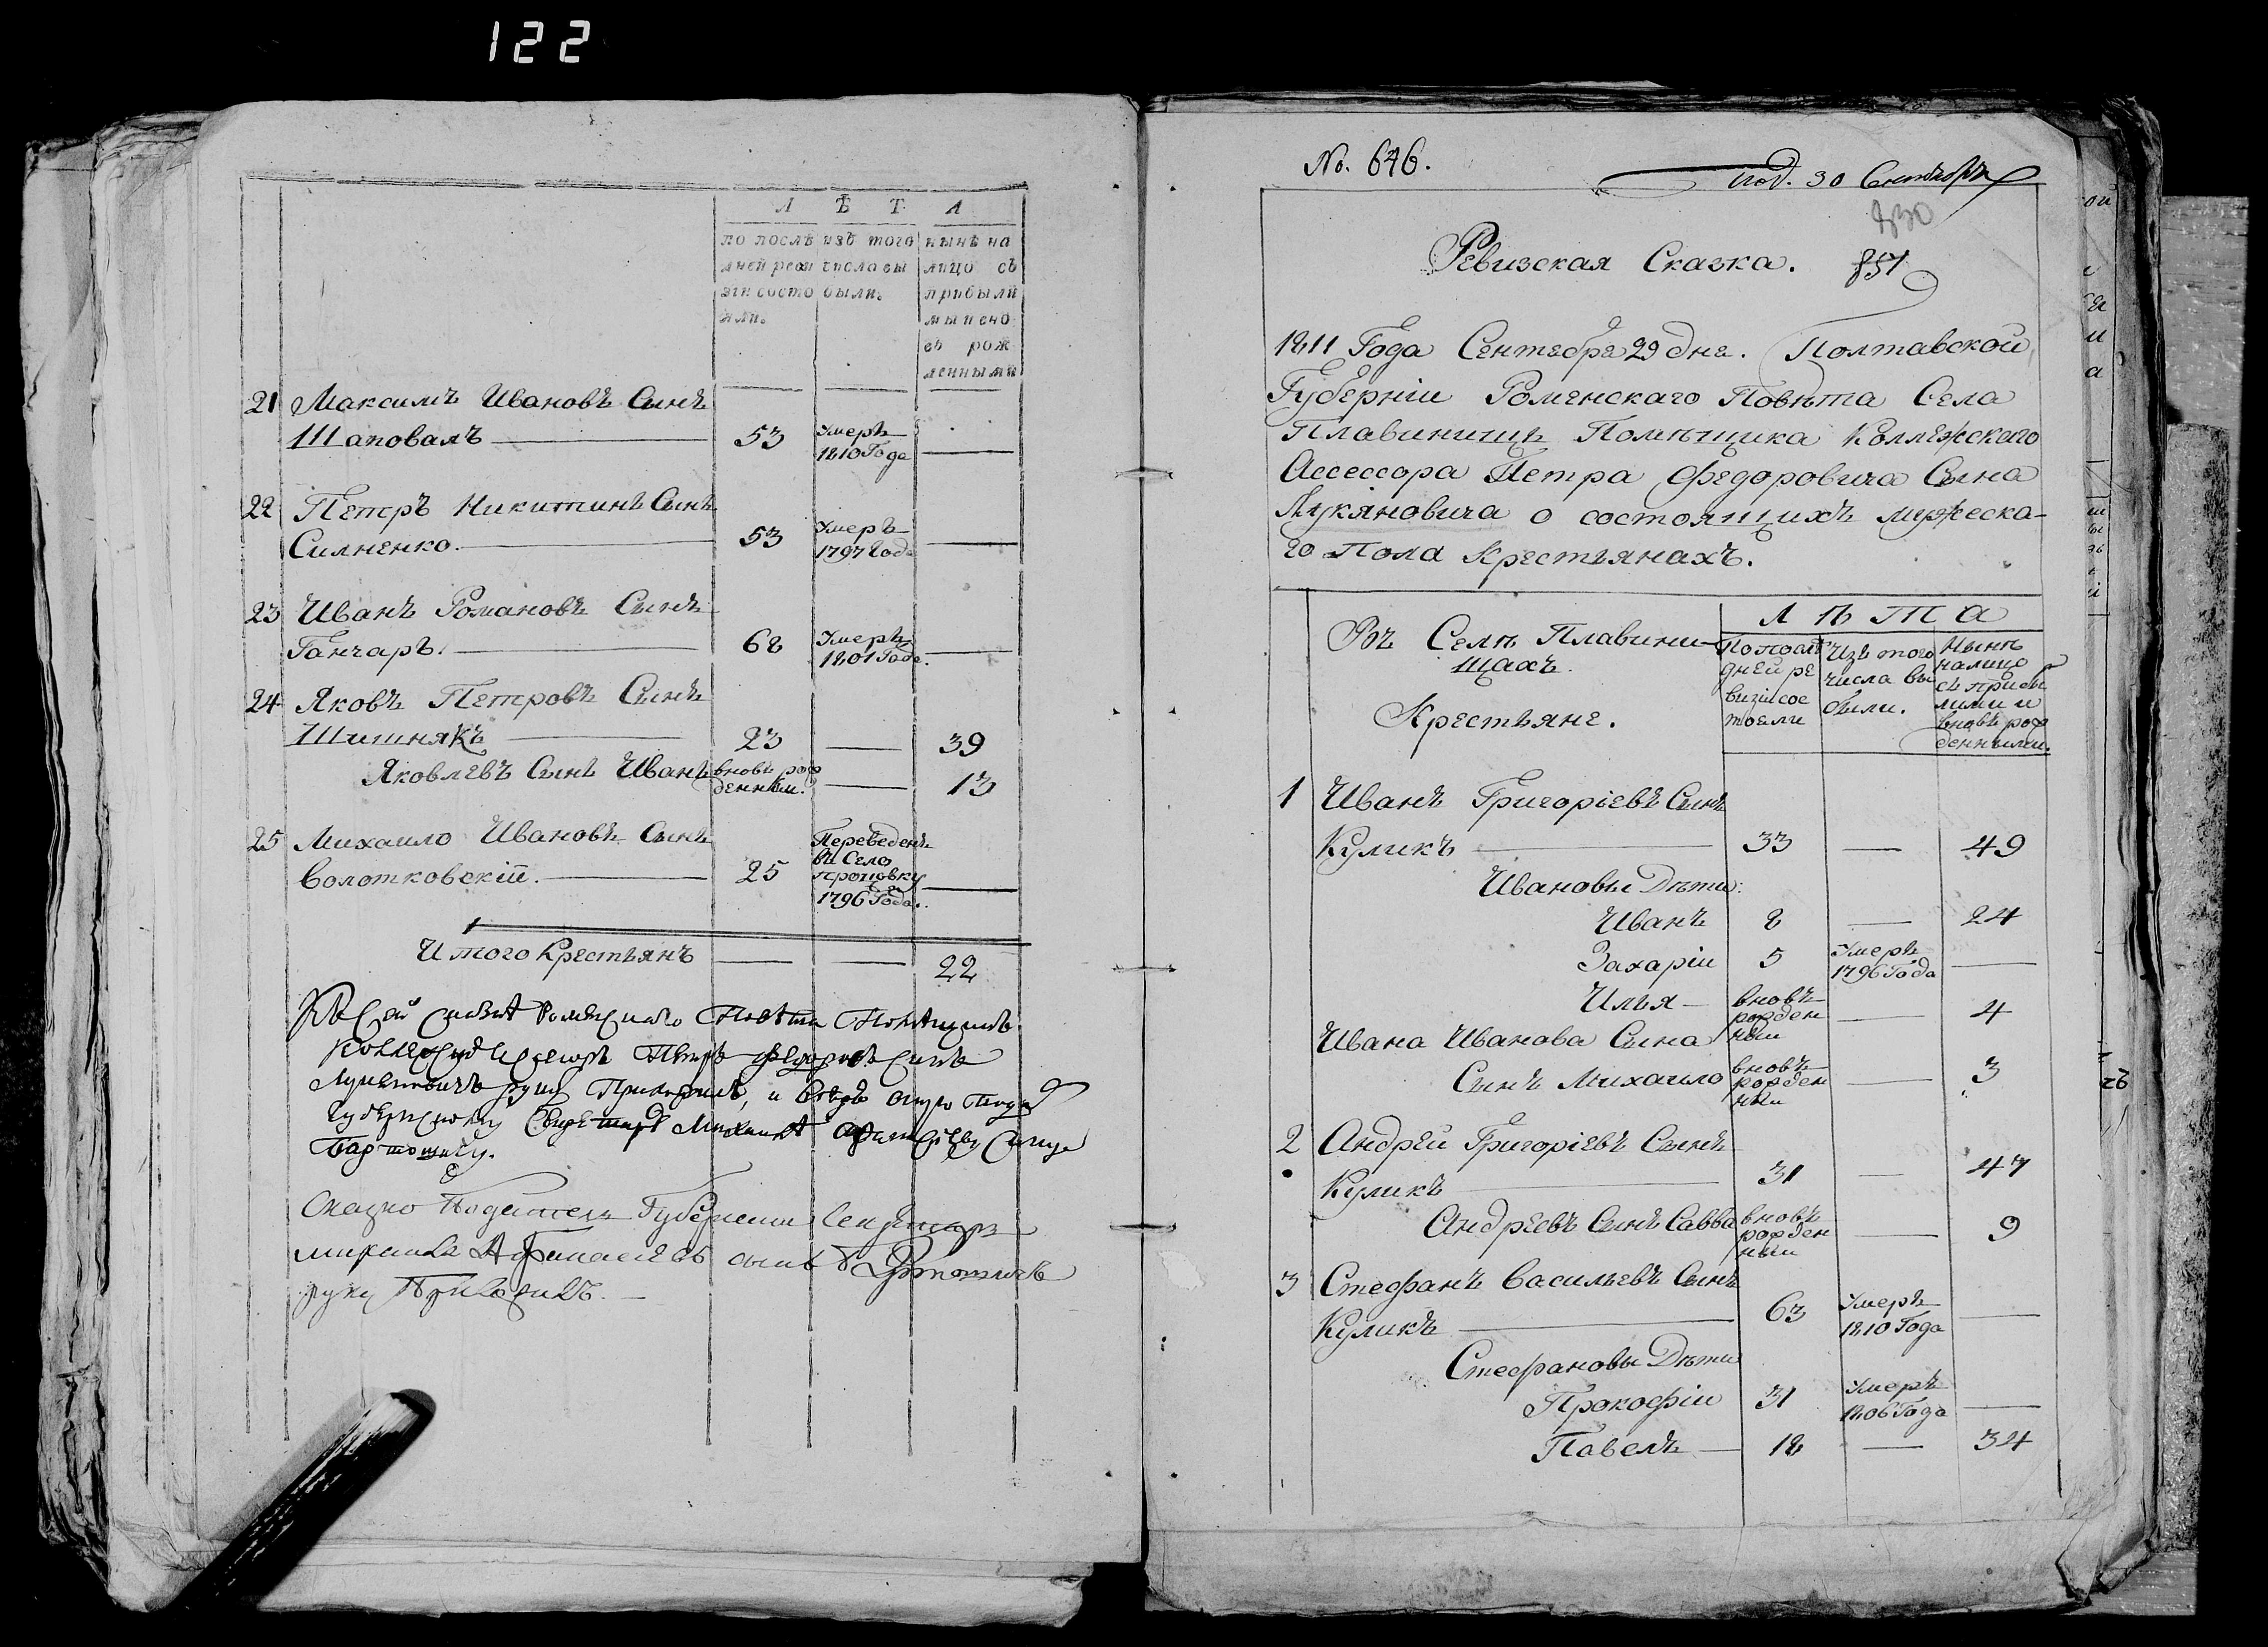 122
Л Ѣ Т А
по послѣ изъ того нынѣ на
дней реви числа вы лицо съ
зіи состо были. прибыли
яли. ми и вно
въ рож
денными
21 Максимъ Ивановъ Сынъ
Шаповалъ 53 Умеръ 1810 Года
22 Петръ Никитинъ Сынъ
Силненко. 53 Умеръ 1797 Года
23 Иванъ Романовъ Сынъ
Ганчаръ. 68 Умеръ 1801 Года.
24 Яковъ Петровъ Сынъ
Шишнякъ 23 39
Яковлевъ Сынъ Иванъ вновь рожденный. 13
25 Михаило Ивановъ Сынъ
Волотковскій. 25 Переведенъ въ Село 1796 Года.
Итого Крестьянъ 22
Къ сей сказкѣ Роменскаго Повѣта Помѣщикъ
Коллежскій Ассесоръ Петръ Федоровъ сынъ
Лукяновичъ руку Приложилъ, и
Губернскому Секретарю Михаилѣ
Бартошу.
Сказку Подалъ Губернскій Секретарь
михаила Афанасіевъ сынъ
руку Приложилъ.
No. 646.
под. 30 Сентября
830
Ревизская Сказка. 851
1811 Года Сентебре 29 дне. Полтавской
Губерніи Роменскаго Повѣта Села
Плавинищъ Помѣщика Коллежскаго
Ассессора Петра Федоровича Сына
Лукяновича о состоящихъ мужеска-
го Пола Крестьянахъ.
Въ Селѣ Плавини-
щахъ.
Крестьяне.
Л ѣ т а
По послѣ Изъ того Нынѣ
дней ре числа вы налицо
визіи сос были. съ прибы
тояли лими и
вновь рож
денными.
1 Иванъ Григоріевъ Сынъ
Куликъ 33 49
Ивановы Дѣти:
Иванъ 8 24
Захаріи 5 Умеръ 1796 Года
Илья вновь рожденныи 4
Ивана Иванова Сына
Сынъ Михаило вновь рожденныи 3
2 Андрей Григоріевъ Сынъ
Куликъ 31 47
Андреевъ Сынъ Савва вновь рожденныи 9
3 Стефанъ Васильевъ Сынъ
Куликъ 63 Умеръ 1810 Года
Стефановы Дѣти
Прокофіи 31 Умеръ 1806 Года
Павелъ 18 34